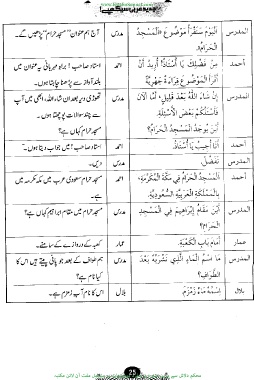 المدرس اَلْيَوْمَ سَنَقْرَأُ مَوْضُوعَ «اَلْمَسْجِدُ الْحَرَامُ». مدرس آج ہم عنوان ”مسجد حرام“ پڑھیں گے۔
أحمد مِنْ فَضْلِكَ يَا أُسْتَاذُ! أُرِيدُ أَنْ أَقْرَأَ الْمَوْضُوعَ قِرَاءَةً جَهْرِيَّةً احمد استاد صاحب! براہ مہربانی یہ عنوان میں بلند آواز سے پڑھنا چاہتا ہوں۔
المدرس إِنْ شَاءَ اللَّهُ بَعْدَ قَلِيلٍ، أَمَّا الْآنَ فَأَسْأَلُكُمْ بَعْضَ الْأَسْئِلَةِ. مدرس تھوڑی دیر بعد ان شاء اللہ، ابھی میں آپ سے چند سوالات پوچھتا ہوں۔
أَيْنَ يُوجَدُ الْمَسْجِدُ الْحَرَامُ؟ مسجد حرام کہاں ہے؟
أحمد أَنَا أُجِيبُ يَا أُسْتَاذُ احمد استاد صاحب! میں جواب دیتا ہوں۔
المدرس تَفَضَّلْ. مدرس دیں۔
أحمد اَلْمَسْجِدُ الْحَرَامُ فِي مَكَّةَ الْمُكَرَّمَةِ، بِالْمَمْلَكَةِ الْعَرَبِيَّةِ السُّعُودِيَّةِ. احمد مسجد حرام سعودی عرب میں مکہ مکرمہ میں ہے۔
المدرس أَيْنَ مَقَامُ إِبْرَاهِيمَ فِي الْمَسْجِدِ الْحَرَامِ؟ مدرس مسجد حرام میں مقام ابراہیم کہاں ہے؟
عمار أَمَامَ بَابِ الْكَعْبَةِ. عمار کعبہ کے دروازے کے سامنے۔
المدرس مَا اسْمُ الْمَاءِ الَّذِي نَشْرَبُهُ بَعْدَ الطَّوَافِ؟ مدرس ہم طواف کے بعد جو پانی پیتے ہیں اس کا کیا نام ہے؟
بلال اِسْمُهُ مَاءُ زَمْزَمَ. بلال اس کا نام آب زمزم ہے۔
25